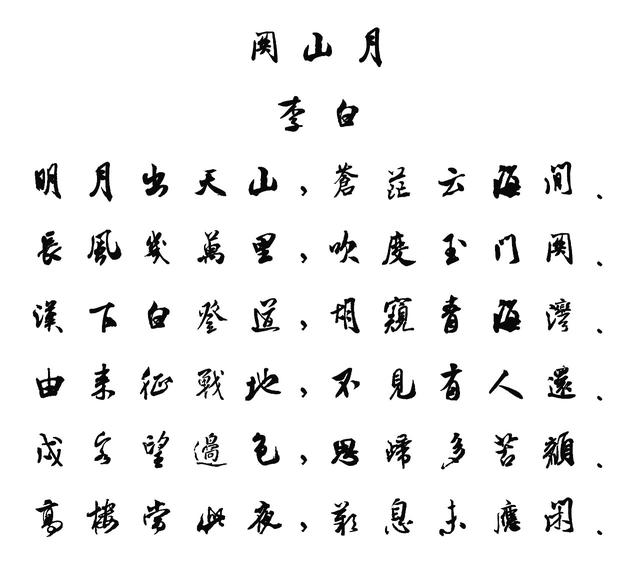 關山月
李白
明月出天山，蒼茫云海間．
長風幾萬里，吹度玉門關．
漢下白登道，胡窺青海灣．
由來征戰地，不見有人還．
戍客望邊色，思歸多苦顏．
高樓當此夜，歎息未應閑．